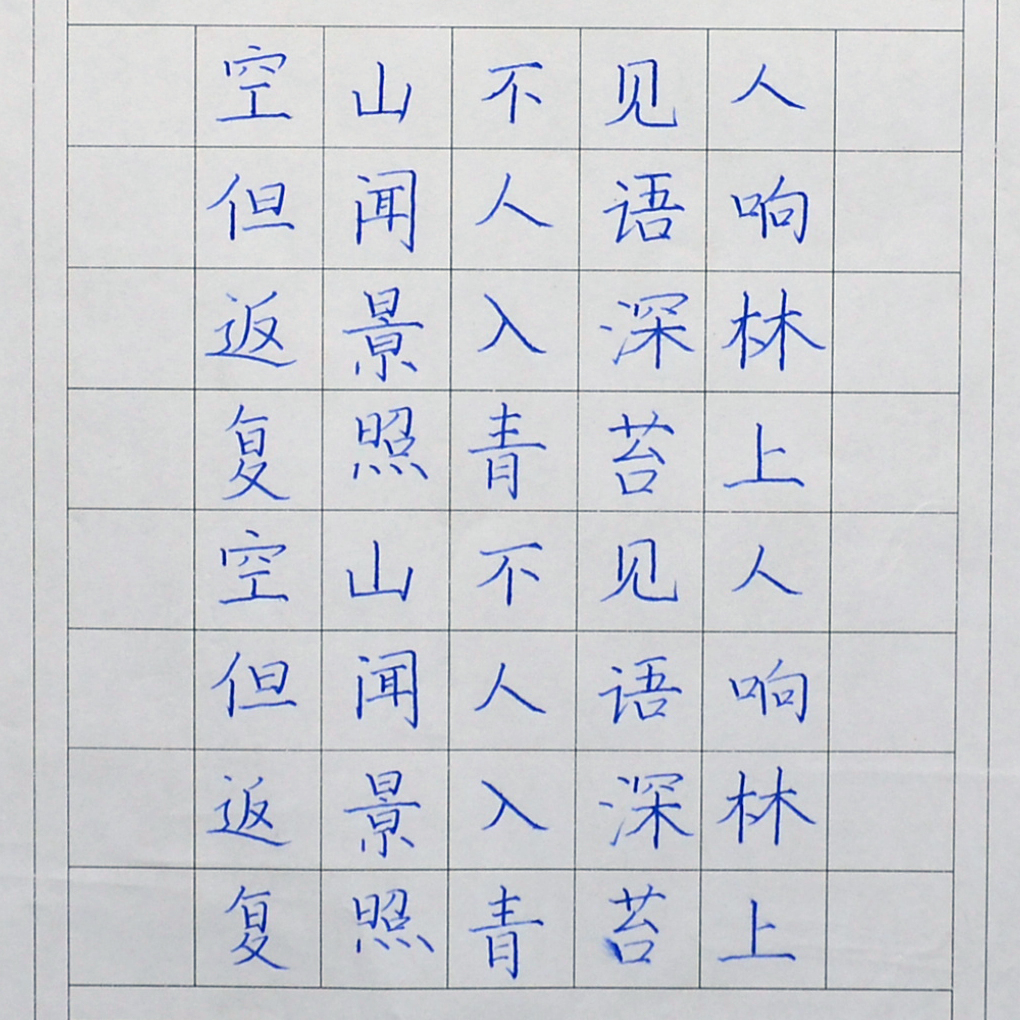 空山不见人
但闻人语响
返景入深林
复照青苔上
空山不见人
但闻人语响
返景入深林
复照青苔上